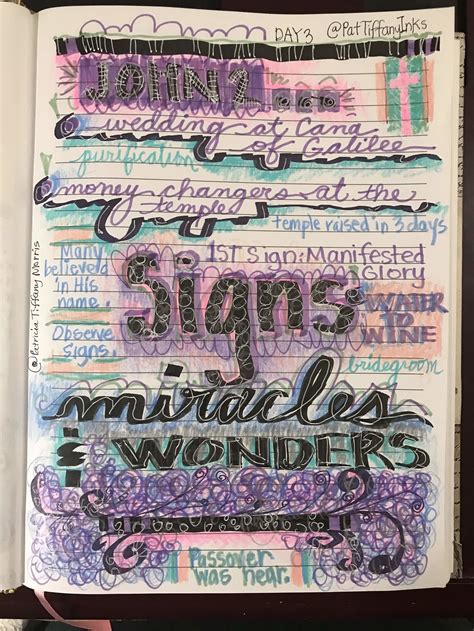 DAY 3 @PatTiffanyInks
JOHN 2...
wedding at Cana
of Galilee
purification
money changers at the
temple
temple raised in 3 days
Many
believed
in His
name.
1ST Sign: Manifested
Glory
Signs
WATER
TO
WINE
Observe
Signs.
bridegroom
miracles
& WONDERS
Passover
was near.
@Patricia Tiffany Morris